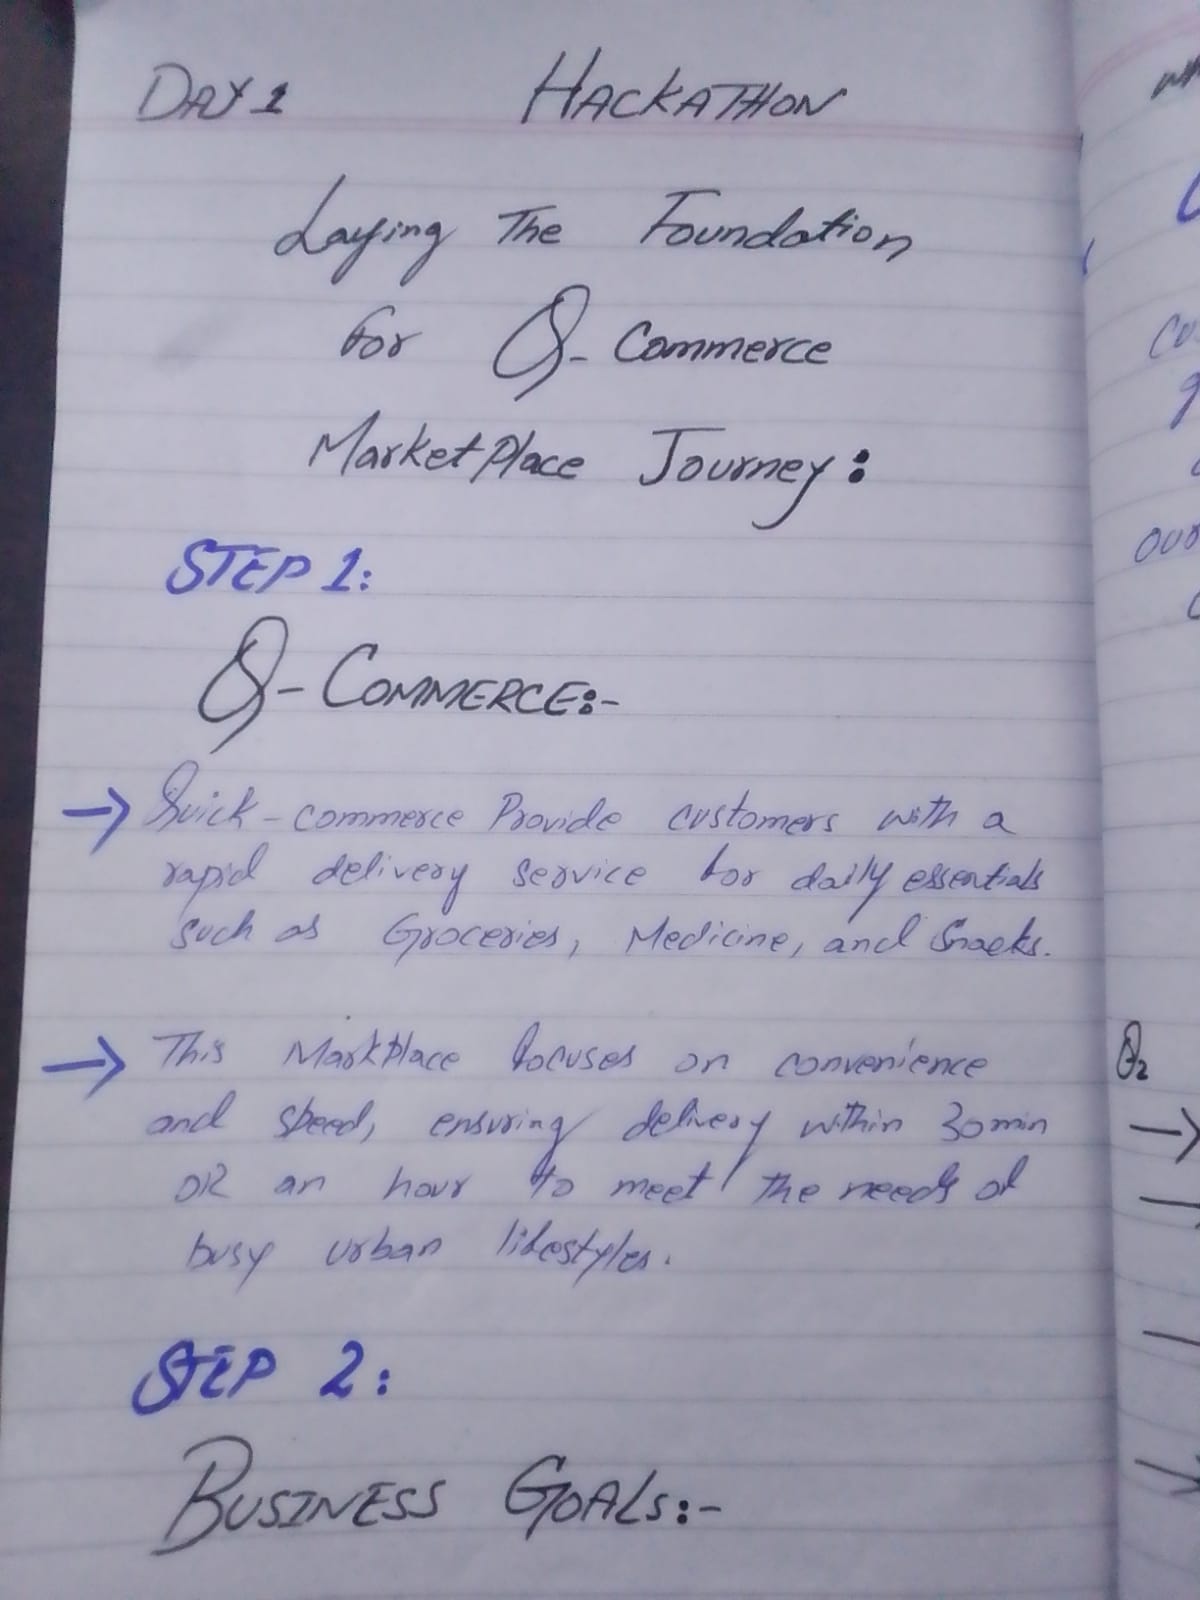 DAY 1 HACKATHON
Laying The Foundation
For Q-Commerce
MarketPlace Journey:
STEP 1:
Q-COMMERCE:-
→ Quick-commerce Provide customers with a
rapid delivery service for daily essentials
such as Groceries, Medicine, and Snacks.
→ This MarktPlace focuses on convenience
and speed, ensuring delivery within 30min
OR an hour to meet the needs of
busy urban lifestyles.
STEP 2:
BUSINESS GOALS:-
our
Q2
→